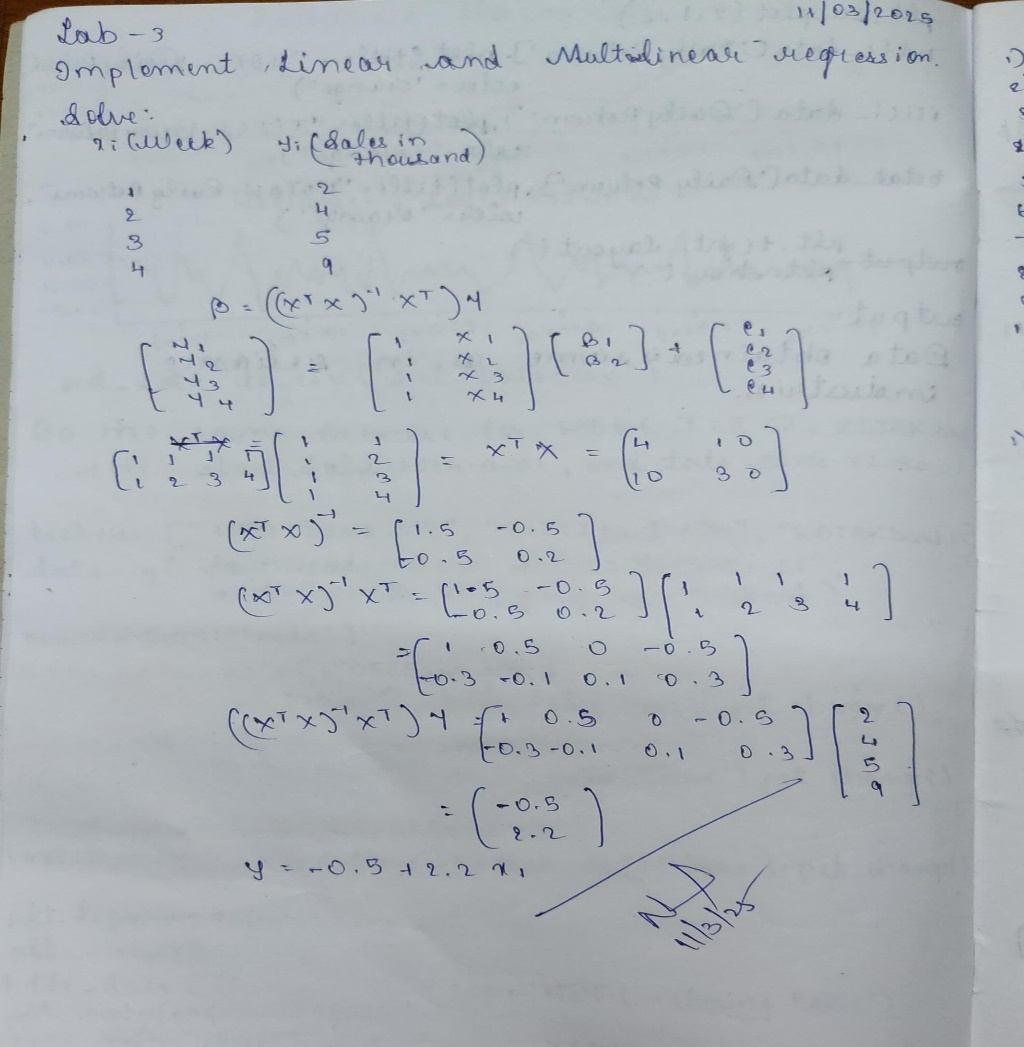 11/03/2025
Lab - 3
Implement Linear and Multilinear regression.
Solve:
xi (Week) yi (Sales in thousand)
1 2
2 4
3 5
4 9
β = ((XᵀX)⁻¹ Xᵀ) Y
[y1 y2 y3 y4] = [1 x1 1 x2 1 x3 1 x4] [β1 β2] + [e1 e2 e3 e4]
XᵀX =
[1 1 1 1 1 2 3 4] [1 1 1 2 1 3 1 4] = XᵀX = [4 10 10 30]
(XᵀX)⁻¹ = [1.5 -0.5 -0.5 0.2]
(XᵀX)⁻¹Xᵀ = [1.5 -0.5 -0.5 0.2] [1 1 1 1 1 2 3 4]
= [1 0.5 0 -0.5 -0.3 -0.1 0.1 0.3]
((XᵀX)⁻¹Xᵀ) Y = [1 0.5 0 -0.5 -0.3 -0.1 0.1 0.3] [2 4 5 9]
= [-0.5 2.2]
y = -0.5 + 2.2 x1
11/3/25